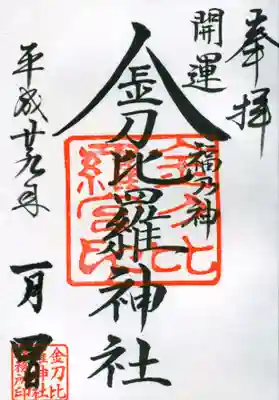 奉拝
開運
福乃神
金刀比羅神社
平成廿九年
一月
金刀比
羅神社
務所印